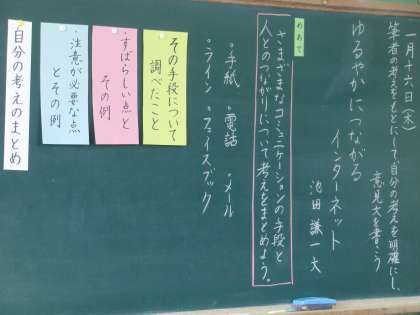 一月十六日(木)
筆者の考えをもとにして、自分の考えを明確にし、
意見文を書こう
ゆるやかにつながる
インターネット
池田謙一
めあて
さまざまなコミュニケーションの手段と
人とのつながりについて考えをまとめよう。
・手紙 ・電話 ・メール
・ライン ・フェイスブック
その手段について
調べたこと
・すばらしい点と
その例
・注意が必要な点
とその例
自分の考えのまとめ